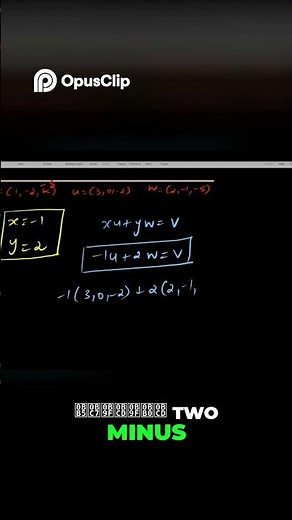 OpusClip
u=(3,0,-2) w=(2,-1,-5)
x=-1
xu+yw=v
y=2
-1u+2w=v
-1(3,0,-2)+2(2,-1,
TWO
MINUS